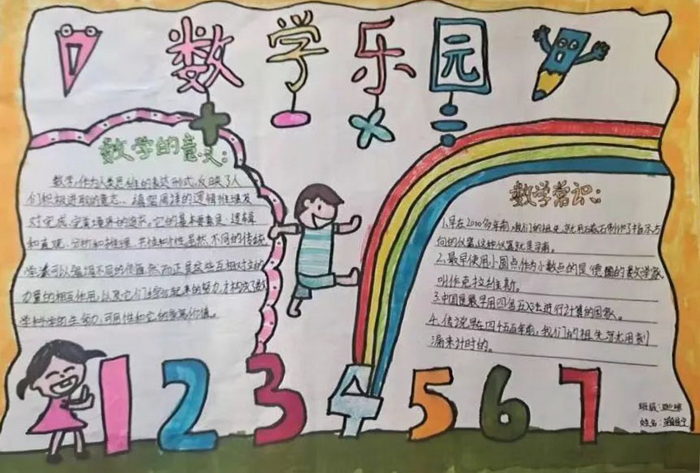 数学乐园
数学的意义:
数学,作为人类思维的表达形式,反映了人
们积极进取的意志、缜密周详的逻辑推理及
对完美境界的追求。它的基本要素是:逻辑
和直观、分析和推理、共性和个性。虽然不同的传统
学派可以强调不同的侧面,然而正是这些互相对立的
力量的相互作用,以及它们综合起来的努力,才构成了数
学科学的生命力、可用性和它的崇高价值。
数学常识:
1.早在2000多年前,我们的祖先就用磁石制作了指示方
向的仪器,这种仪器就是司南。
2.最早使用小圆点作为小数点的是德国的数学家,
叫作克拉维斯。
3.中国是最早用四舍五入法进行计算的国家。
4.传说早在四千五百年前,我们的祖先就用刻
漏来计时的。
1 2 3 4 5 6 7
班级:
姓名: